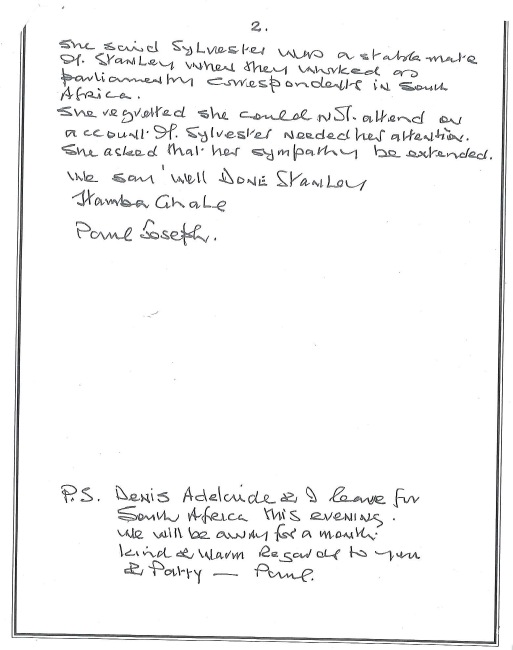 2.
She said Sylvester was a stable mate
of. Stanley when they worked as
parliamentry correspondents in South
Africa.
She regretted she could not. attend on
account. of. Sylvester needed her attention.
She asked that her sympathy be extended.
We say 'well DONE Stanley
Hamba Ghale
Paul Joseph.
P.S. Denis Adelaide & I leave for
South Africa this evening.
We will be away for a month.
kind & warm Regards to you
& Patty — Paul.